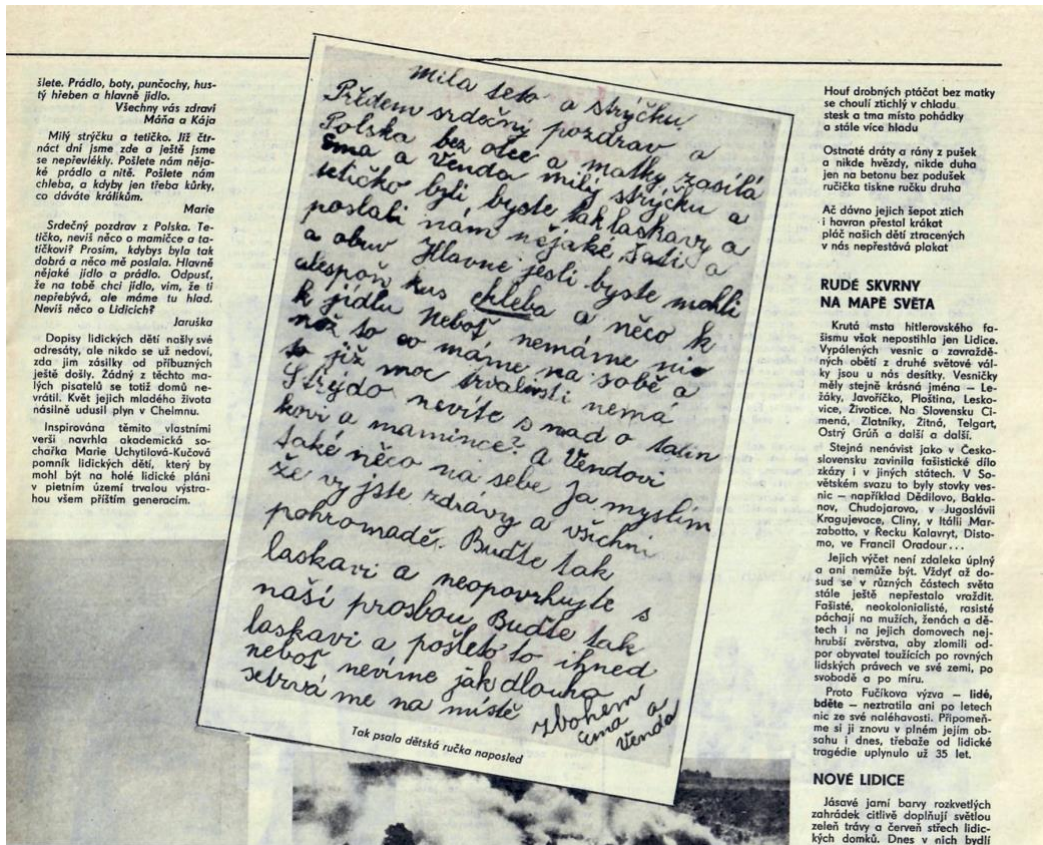 šlete. Prádlo, boty, punčochy, hus-
tý hřeben a hlavně jídlo.
Všechny vás zdraví
Máňa a Kája
Milý strýčku a tetičko. Již čtr-
náct dní jsme zde a ještě jsme
se nepřevlékly. Pošlete nám něja-
ké prádlo a nitě. Pošlete nám
chleba, a kdyby jen třeba kůrky,
co dáváte králíkům.
Marie
Srdečný pozdrav z Polska. Te-
tičko, nevíš něco o mamičce a ta-
tíčkovi? Prosím, kdybys byla tak
dobrá a něco mě poslala. Hlavně
nějaké jídlo a prádlo. Odpusť,
že na tobě chci jídlo, vím, že ti
nepřebývá, ale máme tu hlad.
Nevíš něco o Lidicích?
Jaruška
Dopisy lidických dětí našly své
adresáty, ale nikdo se už nedoví,
zda jim zásilky od příbuzných
ještě došly. Žádný z těchto ma-
lých pisatelů se totiž domů ne-
vrátil. Květ jejich mladého života
násilně udusil plyn v Chelmnu.
Inspirována těmito vlastními
verši navrhla akademická so-
chařka Marie Uchytilová-Kučová
pomník lidických dětí, který by
mohl být na holé lidické pláni
v pietním území trvalou výstra-
hou všem příštím generacím.
Milá teto a strýčku.
Předem srdečný pozdrav a
Polska bez otce a matky zasílá
Ema a Venda milý strýčku a
tetičko byli byste tak laskavy a
poslali nám nějaké šati a
a obuv Hlavně jesli byste mohli
alespoň kus chleba a něco k
k jídlu Neboť nemáme nic
než to co máme na sobě a
to již moc trvalosti nemá
Strejdo nevíte s nad o tatín
kovi a mamince? a Vendovi
také něco na sebe Ja myslím
že vy jste zdrávy a všichni
pohromadě. Buďte tak
laskavi a neopovrhujte s
naší prosbou Buďte tak
laskavi a pošleto to ihned
neboť nevíme jak dlouho
setrvá me na místě
zbohem
Ema a
Venda
Tak psala dětská ručka naposled
Houf drobných ptáčat bez matky
se choulí ztichlý v chladu
stesk a tma místo pohádky
a stále více hladu
Ostnaté dráty a rány z pušek
a nikde hvězdy, nikde duha
jen na betonu bez podušek
ručička tiskne ručku druha
Ač dávno jejich šepot ztich
i havran přestal krákat
pláč našich dětí ztracených
v nás nepřestává plakat
RUDÉ SKVRNY
NA MAPĚ SVĚTA
Krutá msta hitlerovského fa-
šismu však nepostihla jen Lidice.
Vypálených vesnic a zavražd-
ných obětí z druhé světové vál-
ky jsou u nás desítky. Vesničky
měly stejně krásná jména – Le-
žáky, Javoříčko, Ploština, Lesko-
vice, Životice. Na Slovensku Ci-
mená, Zlatníky, Žitná, Telgart,
Ostrý Grúň a další a další.
Stejná nenávist jako v Česko-
slovensku zavinila fašistické dílo
zkázy i v jiných státech. V So-
větském svazu to byly stovky ves-
nic – například Dědilovo, Bakla-
nov, Chudojarovo, v Jugoslávii
Kragujevace, Cliny, v Itálii Mar-
zabotto, v Řecku Kalavryt, Disto-
mo, ve Francii Oradour...
Jejich výčet není zdaleka úplný
a ani nemůže být. Vždyť až do-
sud se v různých částech světa
stále ještě nepřestalo vraždit.
Fašisté, neokolonialisté, rasisté
páchají na mužích, ženách a dě-
tech i na jejich domovech nej-
hrubší zvěrstva, aby zlomili od-
por obyvatel toužících po rovných
lidských právech ve své zemi, po
svobodě a po míru.
Proto Fučíkova výzva – lidé,
bděte – neztratila ani po letech
nic ze své naléhavosti. Připomeň-
me si ji znovu v plném jejím ob-
sahu i dnes, třebaže od lidické
tragédie uplynulo už 35 let.
NOVÉ LIDICE
Jásavé jarní barvy rozkvetlých
zahrádek citlivě doplňují světlou
zeleň trávy a červeň střech lidic-
kých domků. Dnes v nich bydlí